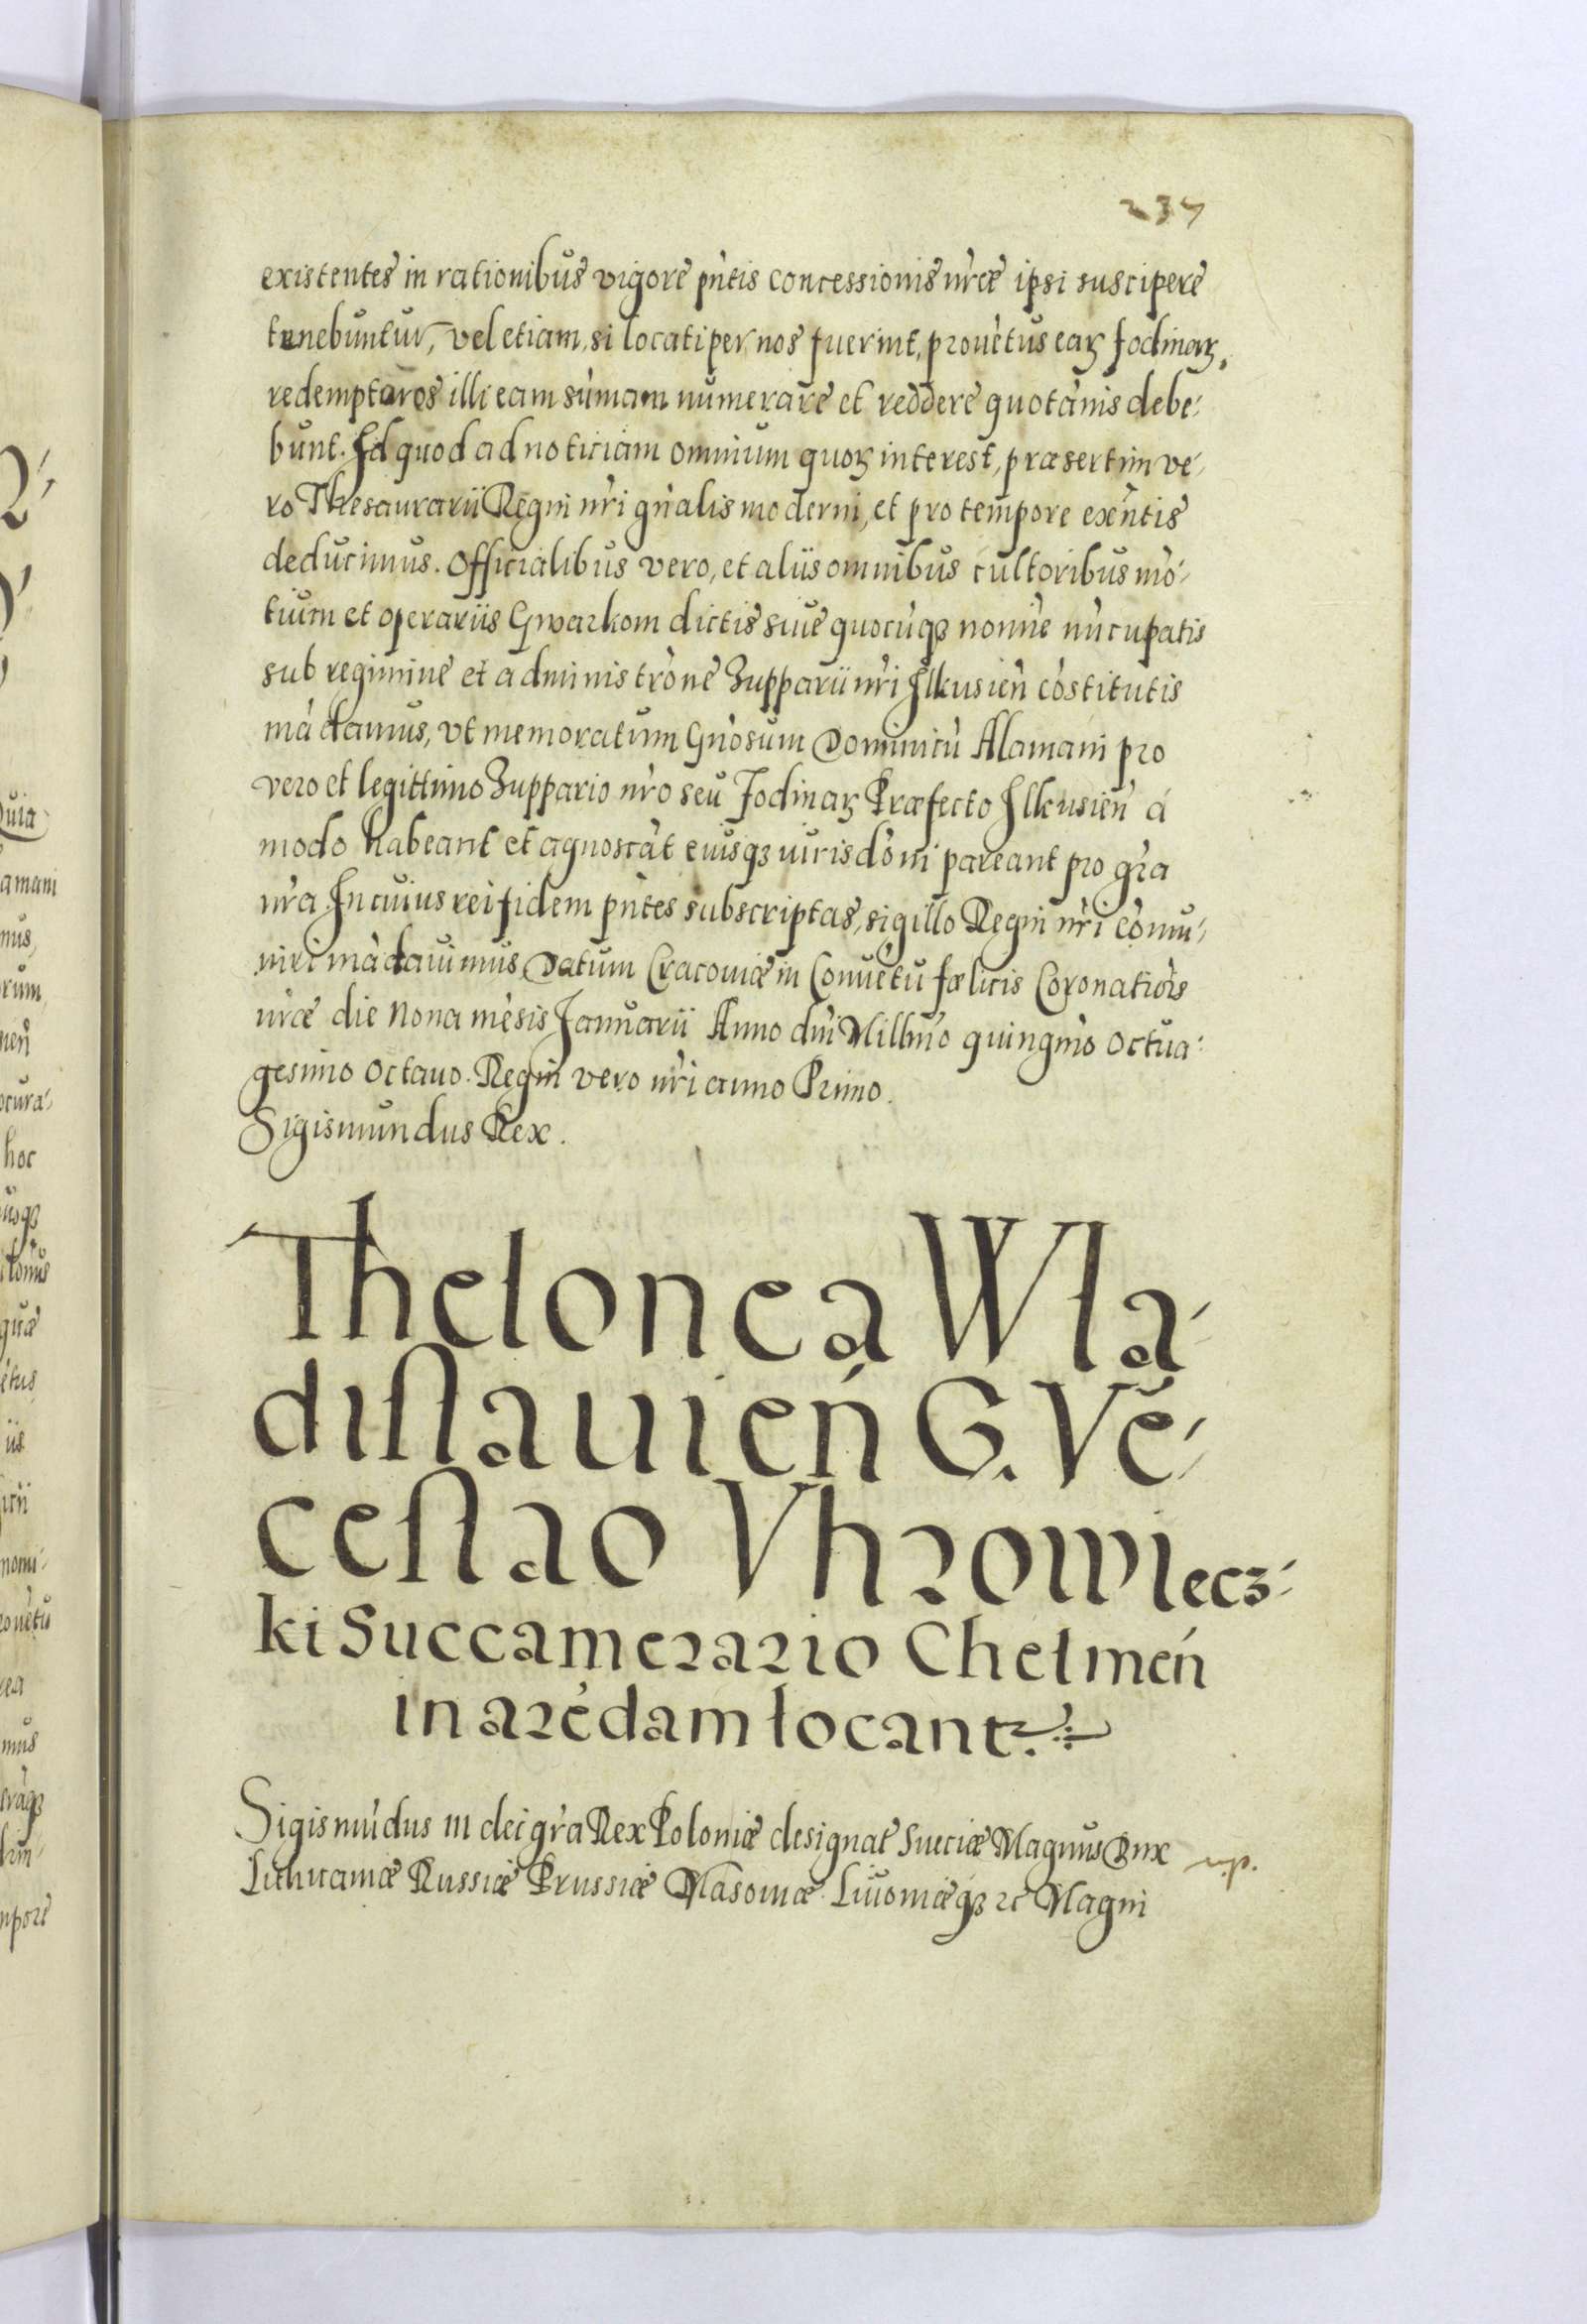 237
existentes in rationibus vigore pñtis concessionis nr̃æ ipsi suscipere
tenebuntur, vel etiam, si locati per nos fuerint, prouẽtus eaꝝ fodinaꝝ,
redempturos illi eam sũmam numerare et reddere quotãnis debe⸗
bunt. Id quod ad noticiam omnium quoꝝ interest, præsertim ve⸗
ro Thesaurarii Regni nr̃i gñalis moderni, et pro tempore exẽntis
deducimus. Officialibus vero, et aliis omnibus cultoribus mõ⸗
tium et operariis Gwarkom dictis siue quocũqꝫ nomĩe nũcupatis
sub regimine et administrõne Zupparii nr̃i Ilkusieñ cõstitutis
mãdamus, vt memoratum Gñosum Dominicũ Alamani pro
vero et legittimo Zuppario nr̃o seu Fodinaꝝ Præfecto Ilkusieñ á
modo habeant et agnoscãt euisqꝫ iurisdõni pareant pro gr̃a
nr̃a. In cuius rei fidem pñtes subscriptas, sigillo Regni nr̃i cõmu⸗
niri mãdauimus, Datum Cracouiæ in Conuẽtu fœlicis Coronatiõis
nr̃æ die Nona mẽsis Januarii Anno dñi Millm̃o quingm̃o octua⸗
gesimo octauo. Regni vero nr̃i anno Primo.
Sigismundus Rex.
Thelonea Wla⸗
dislauień G. Vẽ⸗
ceslao Vhrowiecz⸗
ki Succamerario Chelmeń
in arẽdam locant.
Sigismũdus III dei gr̃a Rex Poloniæ designat Sueciæ Magnus Dux
Lithuaniæ Russiæ Prussiæ Masouiæ Liuoniæqꝫ ꝛc Magni